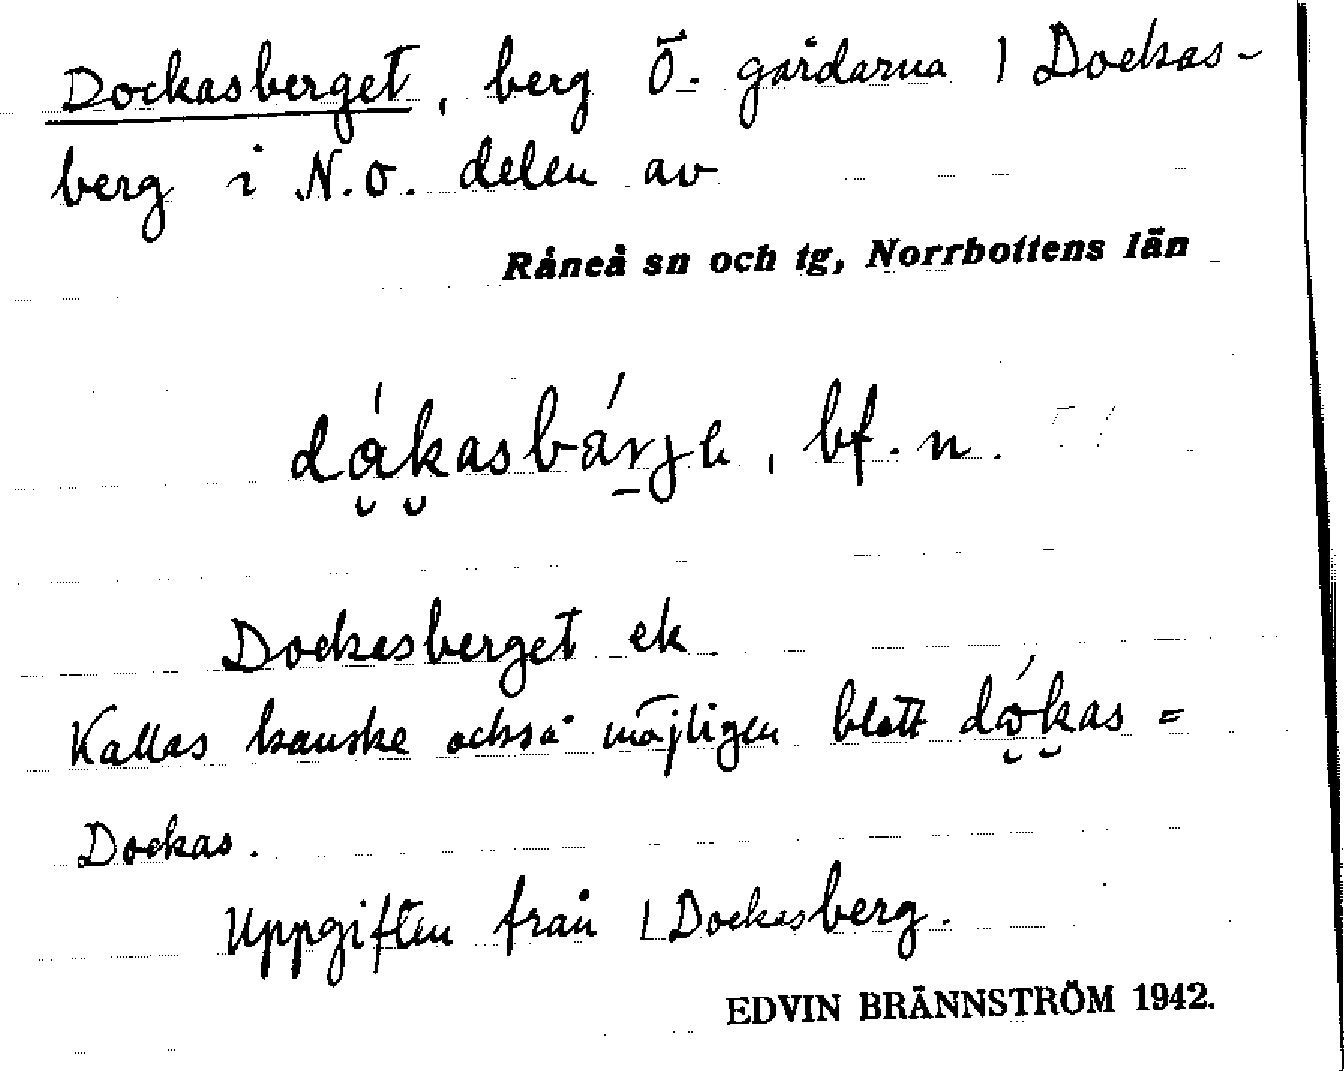 Dockasberget, berg Ö. gårdarna 1 Dockas-
berg i N.O. delen av
Råneå sn och tg, Norrbottens län
dåkasbárje, bf. n.
Dockasberget ek
Kallas kanske också möjligen blott dókas =
Dockas.
Uppgiften från 1 Dockasberg.
EDVIN BRÄNNSTRÖM 1942.